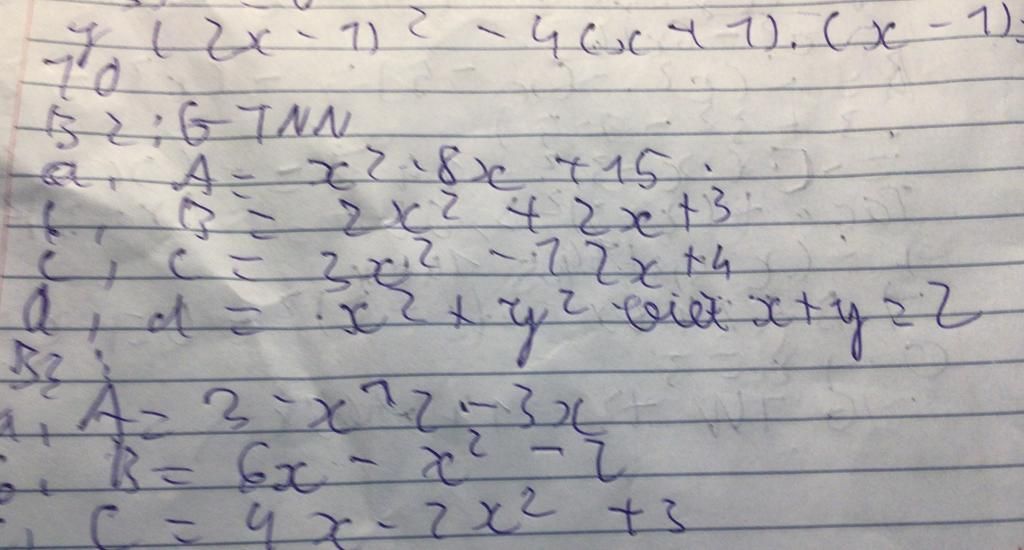 (2x-1)² - 4(x+1).(x-1)=
10
B2: GTNN
a, A = x²-8x+15.
b, B = 2x²+2x+3
c, C = 3x²-12x+4
d, d = x²+y² biet x+y=2
B3:
a, A = 3-x²-3x
b, B = 6x-x²-2
c, C = 4x-2x²+3